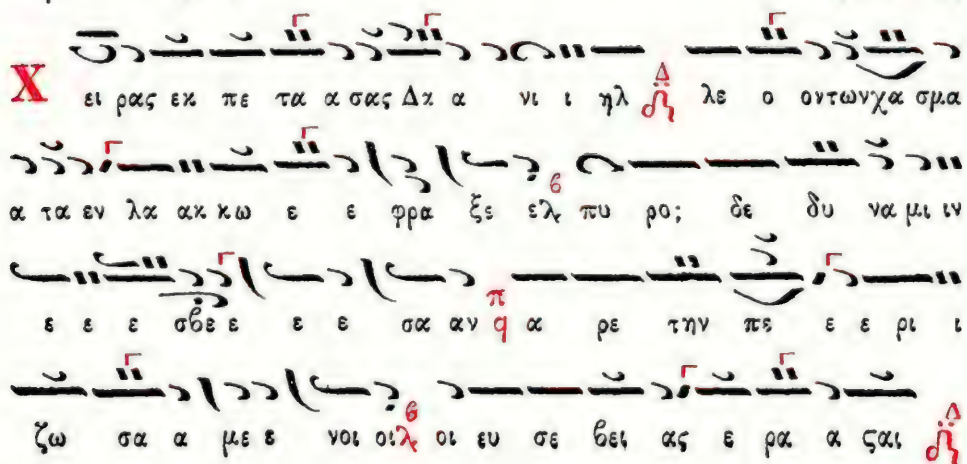 Χ ει ρας εκ πε τα α σας Δα α νι ι ηλ Δ λε ο οντωνχα σμα
α τα εν λα ακ κω ε ε φρα ξε ελ πυ ρο; δε δυ να μι ιν
ε ε ε σβε ε ε ε σα αν π q α ρε την πε ε ε ρι ι
ζω σα α με ε νοι οι οι ευ σε βει ας ε ρα α ςαι Δ